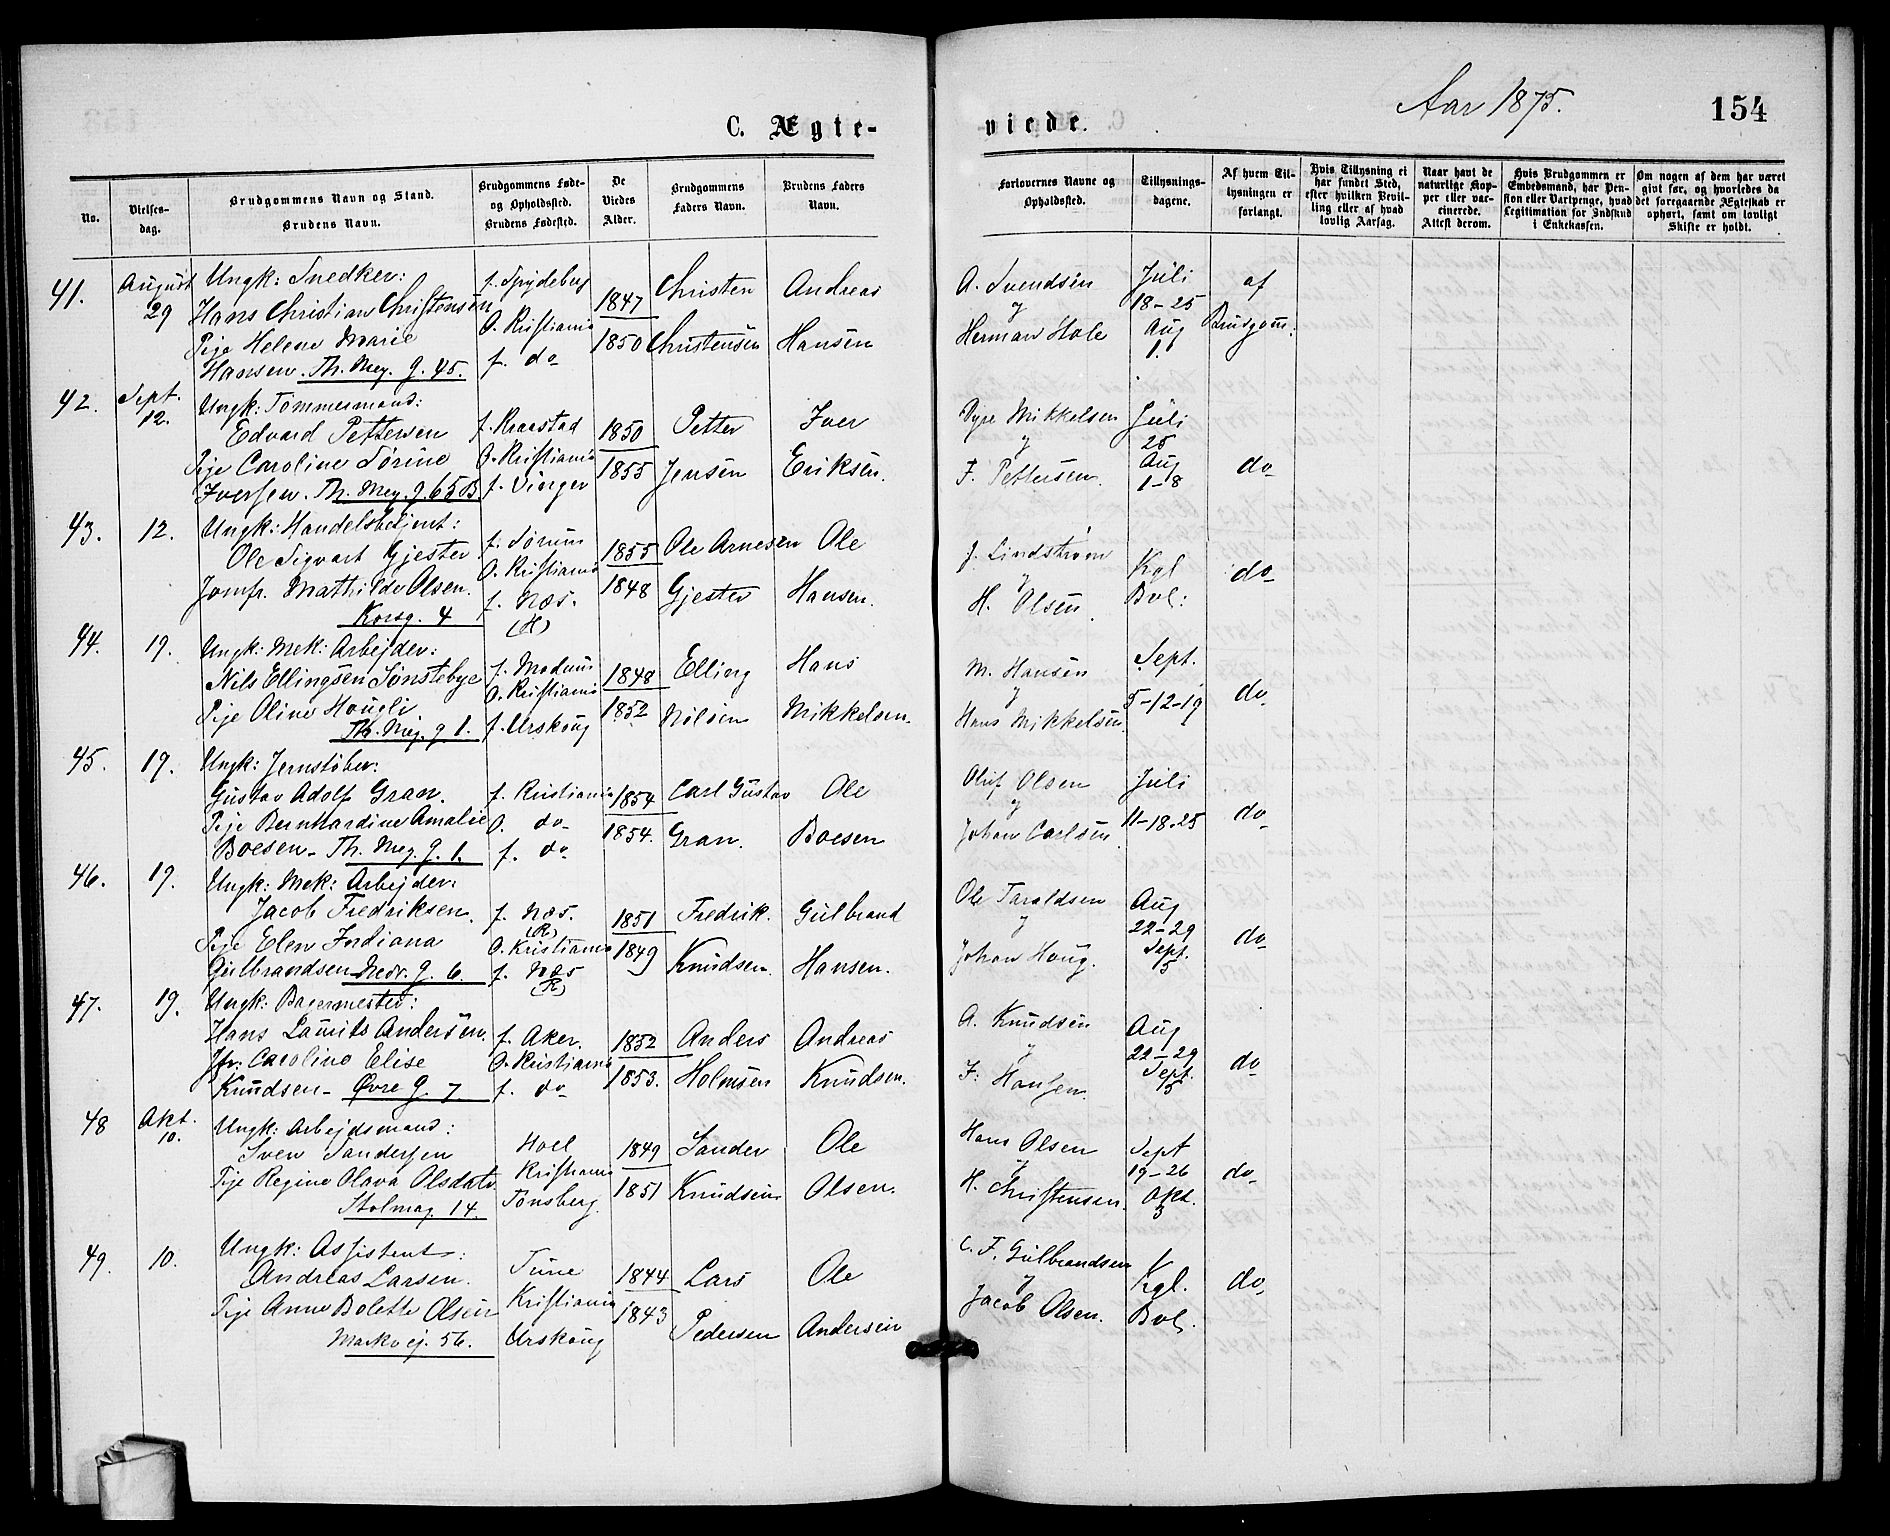 Aar 1875.
154
C. Ægte-
viede.
No.
Vielses-
dag.
Brudgommens Navn og Stand.
Brudens Navn.
Brudgommens Føde-
og Opholdssted.
Brudens Fødested.
De
Viedes
Alder.
Brudgommens
Faders Navn.
Brudens Faders
Navn.
Forlovernes Navne og
Opholdssted.
Tillysnings-
dagene.
Af hvem Til-
lysningen er
forlangt.
Hvis Tillysning ei
har fundet Sted,
efter hvilken Bevil-
ling eller af hvad
lovlig Aarsag.
Naar havt de
naturlige Kop-
per eller vac-
cinerede.
Attest derom.
Hvis Brudgommen er
Embedsmand, har Pen-
sion eller Vartpenge, hvad
Legitimation for Indskud
i Enkekassen.
Om nogen af dem har været
gift før, og hvorledes da
det foregaaende Ægteskab er
ophørt, samt om lovligt
Skifte er holdt.
41. August 29
Ungk: Snedker:
Hans Christian Christensen
Pige Helene Marie
Hansen. Th. Mey. g. 45.
f. Spydeberg
O. Kristiania
f. do
1847
1850
Christen
Christensen
Andreas
Hansen
A. Svendsen
og
Herman Hole
Juli
18-25
Aug
1.
af
Brudgom.
42. Sept. 12.
Ungk: Tømmermand:
Edvard Pettersen
Pige Caroline Sørine
Iversen. Th. Mey. g. 65B.
f. Kraakstad
O. Kristiania
f. Vinger
1850
1855
Petter
Jensen
Iver
Eriksen.
Dyre Mikkelsen
og
F. Pettersen.
Juli
25
Aug
1-8
do
43. 12.
Ungk: Handelsbetjent:
Ole Sigvart Gjester
Jomfr. Mathilde Olsen.
Korsg. 4
f. Sørum
O. Kristiania
f. Næs.
(H)
1855
1848
Ole Arnesen
Gjester
Ole
Hansen.
J. Lindstrøm
og
H. Olsen.
Kgl
Bvl:
do
44. 19.
Ungk: Mek: Arbejder:
Nils Ellingsen Sønstebye
Pige Oline Hougli
Th. Mey. g 1.
f. Modum
O. Kristiania
f. Urskoug
1848
1852
Elling
Nilsen
Hans
Mikkelsen.
M. Hansen
og
Hans Mikkelsen.
Sept.
5-12-19
do
45. 19.
Ungk: Jernstøber:
Gustav Adolf Gran.
Pige Bernhardine Amalie
Boesen. Th. Mey. g. 1.
f. Kristiania
O. do
f. do
1854
1854.
Carl Gustav
Gran.
Ole
Boesen
Oluf Olsen
og
Johan Carlsen.
Juli
11-18-25
do
46. 19.
Ungk: Mek: Arbejder:
Jacob Fredriksen.
Pige Elen Indiana
Gulbrandsen Nedr. g. 6.
f. Næs.
(R)
O. Kristiania
f. Næs
(R)
1851
1849
Fredrik.
Knudsen.
Gulbrand
Hansen.
Ole Taraldsen
og
Johan Houg.
Aug
22-29
Sept.
5
do
47. 19.
Ungk: Bagermester:
Hans Laurits Andersen.
Jfr. Caroline Elise
Knudsen. Øvre g. 7
f. Aker.
O. Kristiania
f. do
1852
1853.
Anders
Holmsen
Andreas
Knudsen.
A. Knudsen
og
F. Hansen.
Aug
22-29
Sept.
5
do
48 Okt. 10.
Ungk: Arbejdsmand:
Sven Sandersen
Pige Regine Olava Olsdatr
Stolmag. 14.
Hoel
Kristiania
Tønsberg.
1849
1851
Sander
Knudsen
Ole
Olsen.
Hans Olsen
og
H. Christensen.
Sept
19-26
Okt.
3
do
49. 10.
Ungk: Assistent:
Andreas Larsen.
Pige Anne Bolette Olsen
Markvej. 56.
Tune
Kristiania
Urskoug
1844
1843
Lars
Pedersen
Ole
Andersen
C. F. Gulbrandsen
og
Jacob Olsen.
Kgl.
Bvl.
do